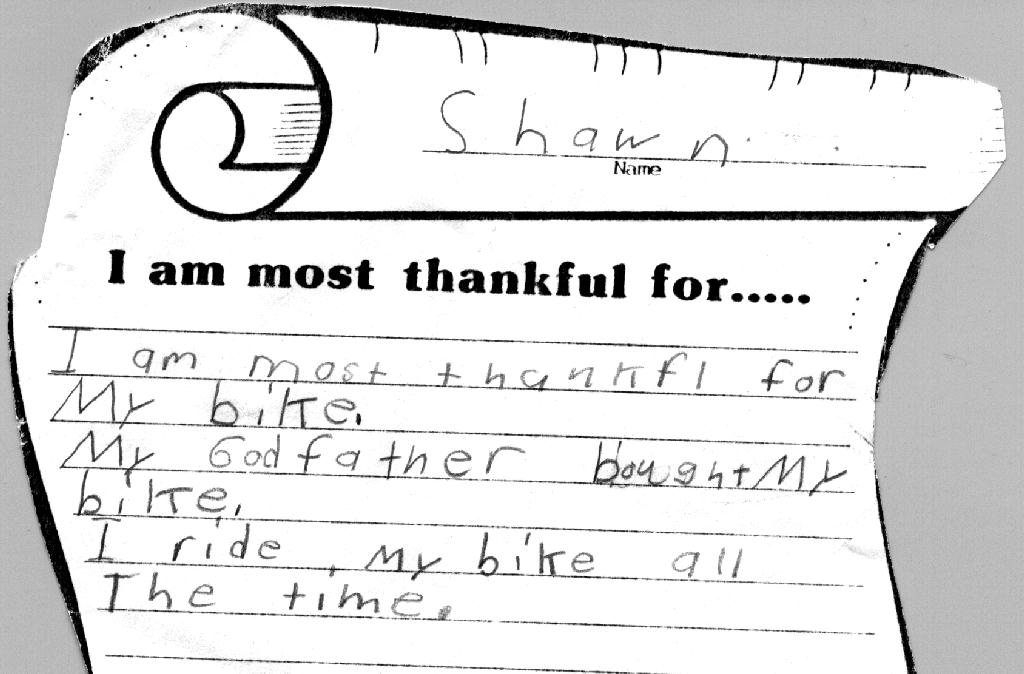 Shawn
Name
I am most thankful for.....
I am most thankfl for
My bike.
My Godfather bought My
bike.
I ride my bike all
The time.